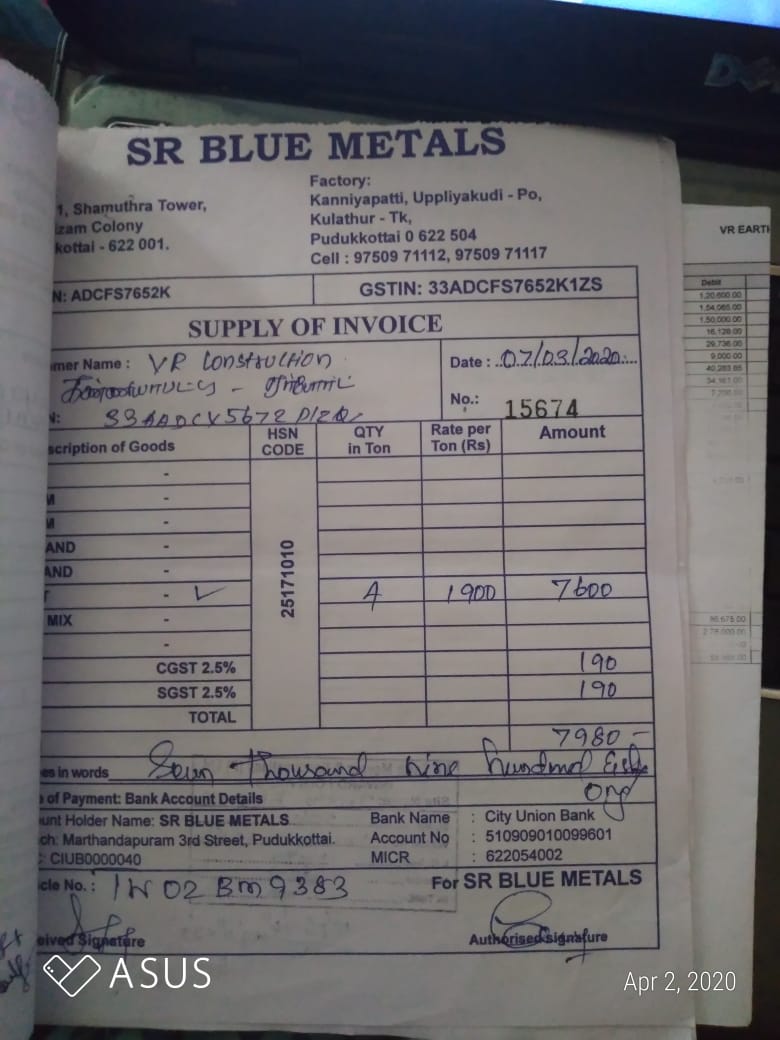 SR BLUE METALS
1, Shamuthra Tower,
zam Colony
kottai - 622 001.
Factory:
Kanniyapatti, Uppliyakudi - Po,
Kulathur - Tk,
Pudukkottai 0 622 504
Cell : 97509 71112, 97509 71117
N: ADCFS7652K
GSTIN: 33ADCFS7652K1ZS
SUPPLY OF INVOICE
mer Name : VR Construction
Date : 07/03/2020
No.: 15674
scription of Goods
HSN CODE
QTY in Ton
Rate per Ton (Rs)
Amount
-
M -
M -
AND -
AND -
25171010
T - ✓ 4 1900 7600
MIX -
-
CGST 2.5% 190
SGST 2.5% 190
TOTAL
7980 -
es in words Seven thousand nine hundred Eighty
only
e of Payment: Bank Account Details
unt Holder Name: SR BLUE METALS
ch: Marthandapuram 3rd Street, Pudukkottai.
: CIUB0000040
Bank Name : City Union Bank
Account No : 510909010099601
MICR : 622054002
cle No. : TN 02 BM 9383
For SR BLUE METALS
eived Signature
Authorised signature
VR EARTH
Debit
1,20,600.00
1,54,065.00
1,50,000.00
16,128.00
29,736.00
9,000.00
ASUS
Apr 2, 2020